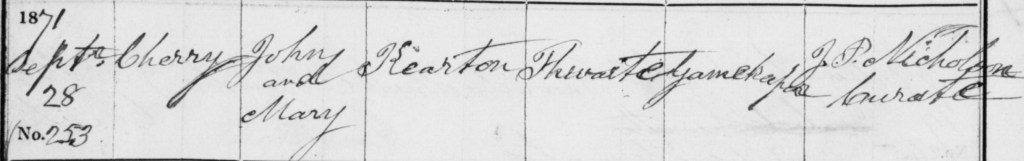 1871
Septr. Cherry John Kearton Thwaite Gamekeeper J. P. Nicholson
28 and Curate
Mary
No. 253